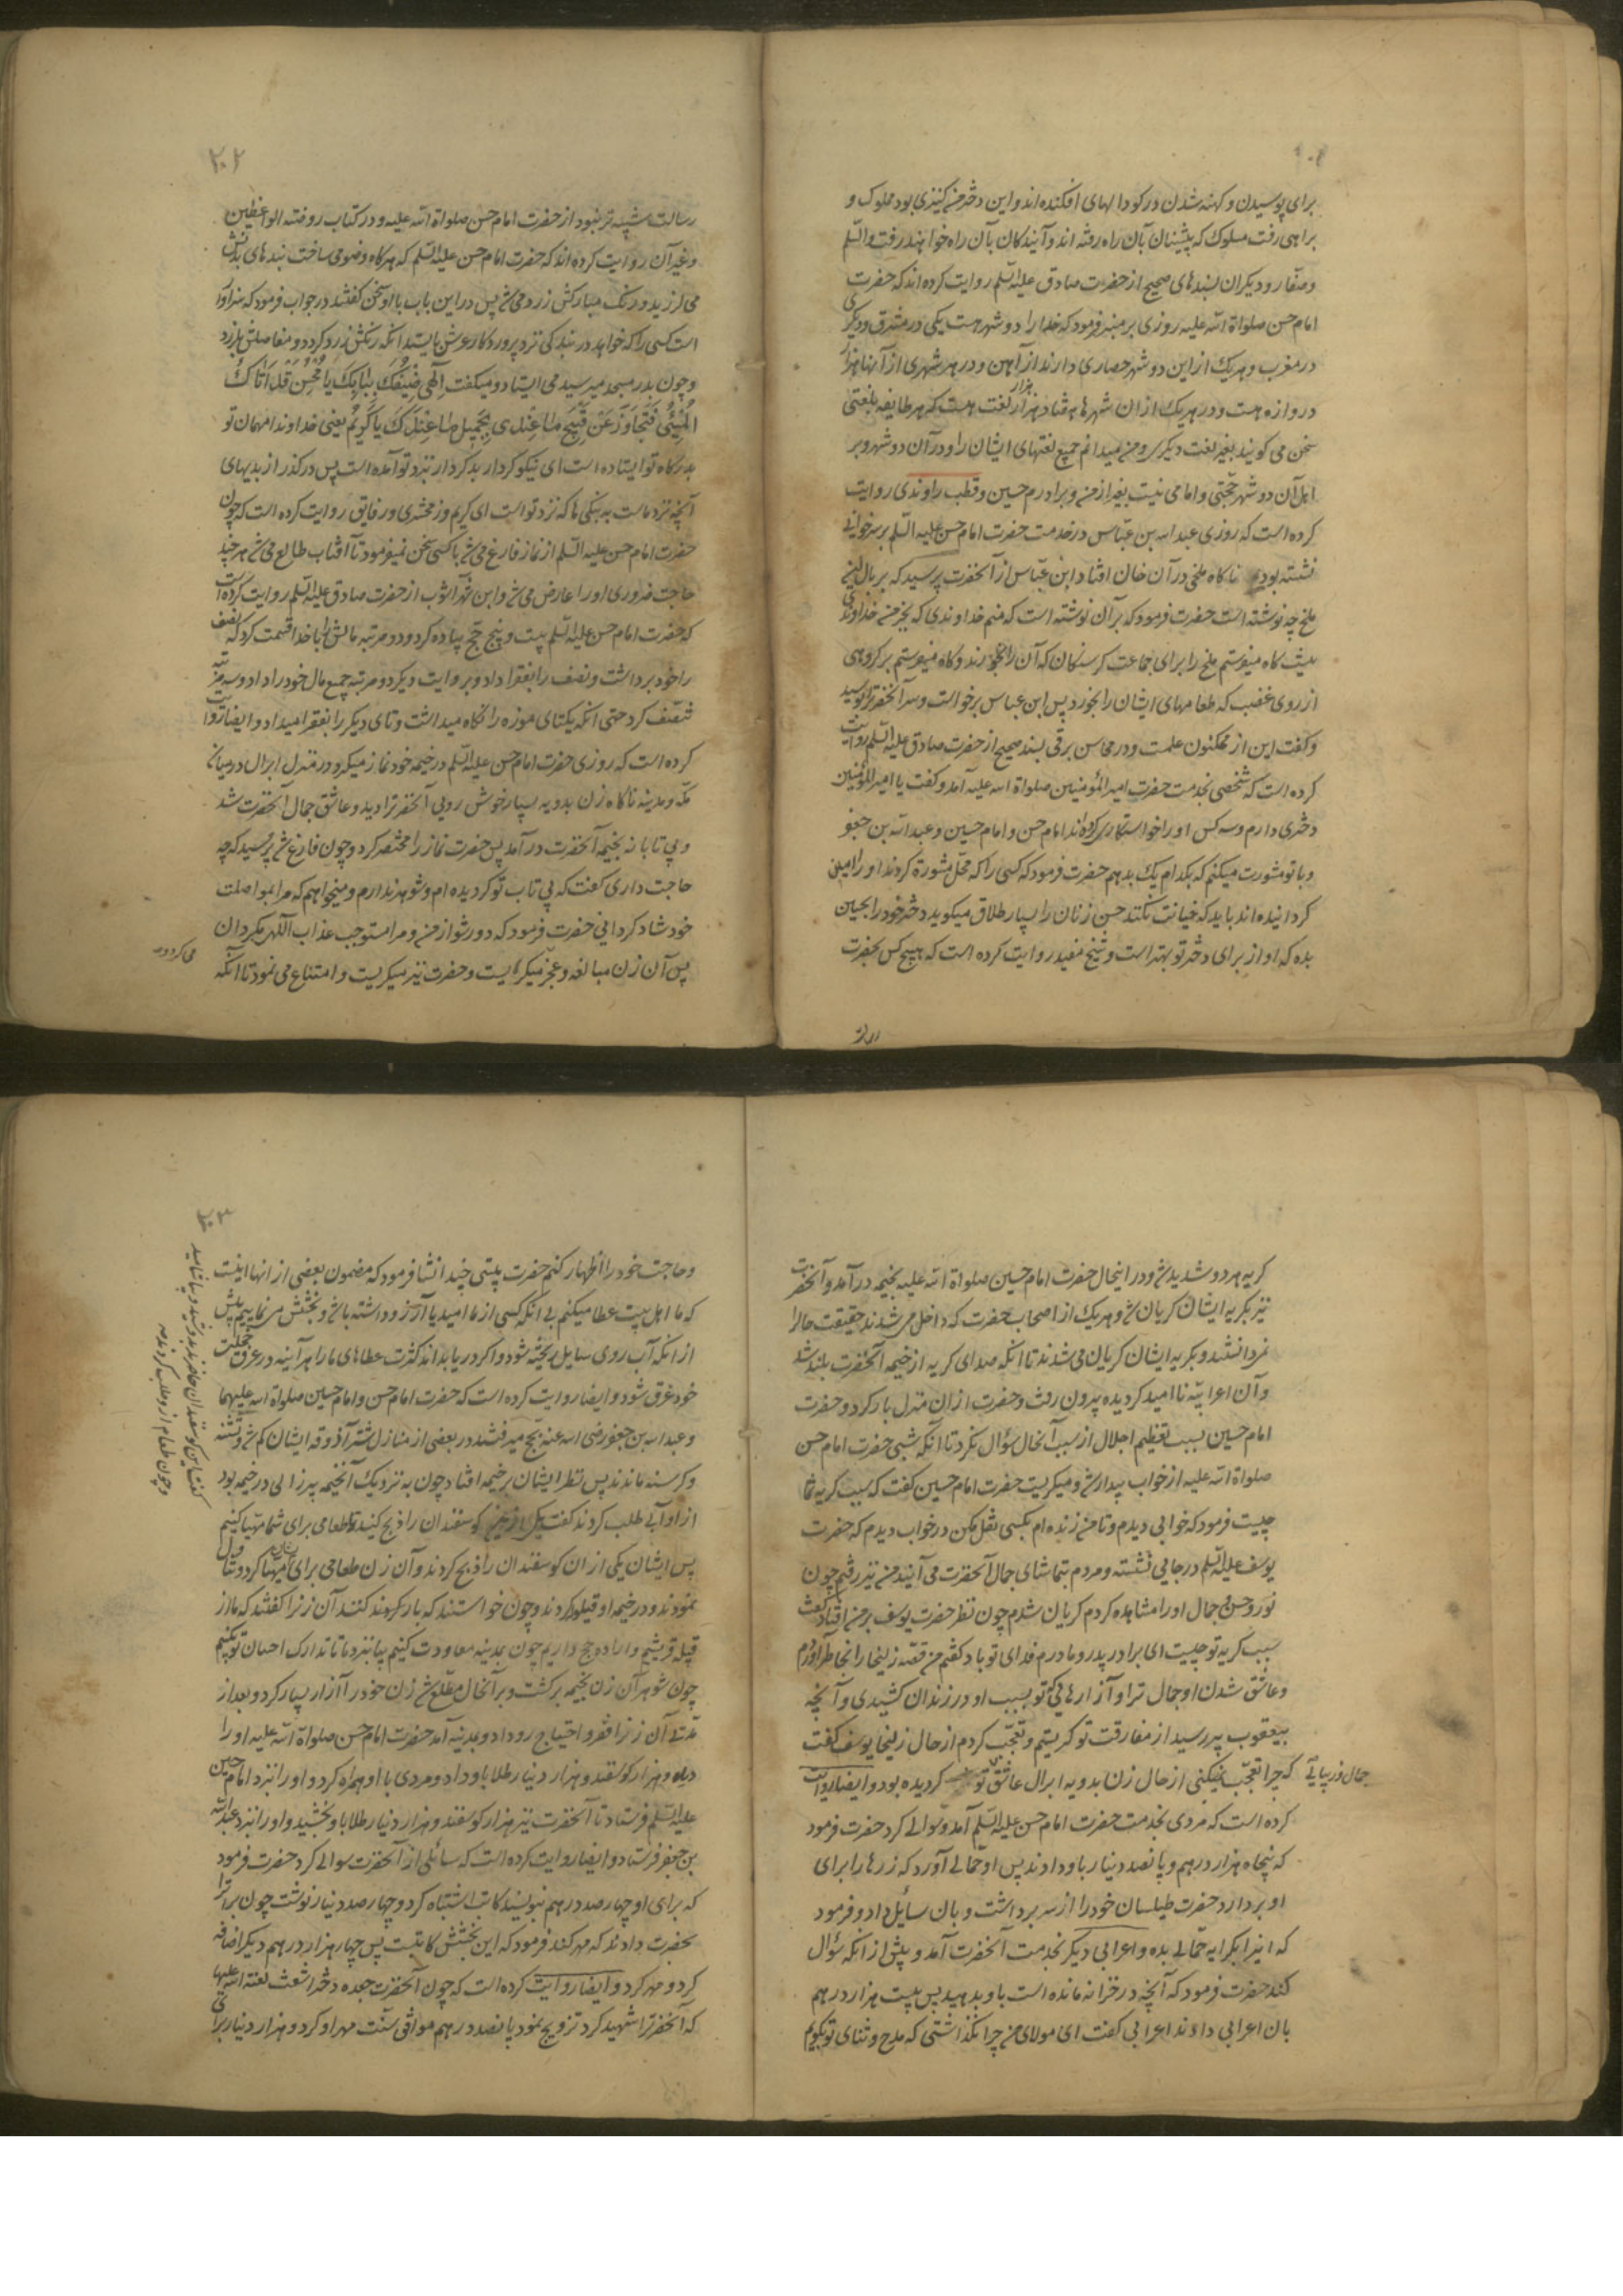 برای پوسیدن و کهنه شدن در کودالهای افکنده اند و این دختر من کنیزی بود مملوک و
براهی رفت مسلوک که پیشینان بآن راه رفته اند و آیندکان بآن راه خواهند رفت والسّلم
و صفّار و دیکران بسندهای صحیح از حضرت صادق علیه السّلم روایت کرده اند که حضرت
امام حسن صلواة الله علیه روزی بر منبر فرمود که خدا را دو شهر هست یکی در مشرق و دیکری
در مغرب و هر یک از این دو شهر حصاری دارند از آهن و در هر شهری از آنها هزار
دروازه هست و در هر یک از ان شهرها هفتاد هزار هزار لغت هست که هر طایفه بلغتی
سخن می کویند بغیر لغت دیکری و من میدانم جمیع لغتهای ایشان را و در آن دو شهر و بر
اهل آن دو شهر حجّتی و امامی نیست بغیر از من و برادرم حسین و قطب راوندی روایت
کرده است که روزی عبد الله بن عبّاس در خدمت حضرت امام حسن علیه السّلم بر سر خوانی
نشسته بود ناکاه ملخی در آن خان افتاد ابن عبّاس از آنحضرت پرسید که بر بال این
ملخ چه نوشته است حضرت فرمود که بر آن نوشته است که منم خداوندی که بجز من خداوندی
نیست کاه میفرستم ملخ را برای جماعت کرسنکان که آن را بخورند و کاه میفرستم بر کروهی
از روی غضب که طعامهای ایشان را بخورد پس ابن عباس برخواست و سر آنحضرترا بوسید
و کفت این از مکنون علمست و در محاسن برقی بسند صحیح از حضرت صادق علیه السّلم روایت
کرده است که شخصی بخدمت حضرت امیر المؤمنین صلواة الله علیه آمد و کفت یا امیر المؤمنین
دختری دارم و سه کس او را خواستکاری کرده اند امام حسن و امام حسین و عبد الله بن جعفر
و با تو مشورت میکنم که بکدام یک بدهم حضرت فرمود که کسی را که محلّ مشورة کردند او را امین
کردانیده اند باید که خیانت نکند حسن زنان را بسیار طلاق میکوید دختر خود را بحسین
بده که او از برای دختر تو بهتر است و شیخ مفید روایت کرده است که هیچ کس بحضرت
۲۰۲
رسالت شبیه تر نبود از حضرت امام حسن صلواة الله علیه و در کتاب روضة الواعظین
و غیر آن روایت کرده اند که حضرت امام حسن علیه السّلم که هر کاه وضو می ساخت بندهای بدنش
می لرزید و رنک مبارکش زرد می شد پس در این باب با او سخن کفتند در جواب فرمود که سزاوار
است کسی را که خواهد در بندکی نزد پروردکار عرش بایستد انکه رنکش زرد کردد و مفاصلش بلرزد
و چون بدر مسجد میرسید می ایستاد و میکفت اِلٰهی ضَیْفُکَ بِبٰابِکَ یٰا مُحْسِنُ قَدْ اَتٰاکَ
الْمُسِیْئُ فَتَجٰاوَزْ عَنْ قَبِیْحِ مٰا عِنْدِی بِجَمِیْلِ مٰا عِنْدَکَ یٰا کَرِیْمُ یعنی خداوندا مهمان تو
بدرکاه تو ایستاده است ای نیکو کردار بد کردار نزد تو آمده است پس در کذر از بدیهای
آنچه نزد ماست به نیکی ها که نزد تو است ای کریم و زمخشری در فایق روایت کرده است که چون
حضرت امام حسن علیه السّلم از نماز فارغ می شد با کسی سخن نمیفرمود تا آفتاب طالع می شد هر چند
حاجت ضروری او را عارض می شد و ابن شهر آشوب از حضرت صادق علیه السّلم روایت کرده است
که حضرت امام حسن علیه السّلم بیست و پنج حجّ پیاده کرد و دو مرتبه مالش را با خدا قسمت کرد که نصف
را خود برداشت و نصف را بفقرا داد و بروایت دیکر دو مرتبه جمیع مال خود را داد و سه مرتبه
تنصّف کرد حتی آنکه یکتای موزه را نکاه میداشت و تای دیکر را بفقرا میداد و ایضا روایت
کرده است که روزی حضرت امام حسن علیه السّلم در خیمه خود نماز میکرد در منزل ابرال درمیانه
مکّه و مدینه ناکاه زن بدویه بسیار خوش رویی آنحضرترا دید و عاشق جمال آنحضرت شد
و بی تابانه بخیمه آنحضرت در آمد پس حضرت نماز را مختصر کرد و چون فارغ شد پرسید که چه
حاجت داری کفت که بی تاب تو کردیده ام و شوهر ندارم و میخواهم که مرا بمواصلت
خود شاد کردانی حضرت فرمود که دور شو از من و مرا مستوجب عذاب اللهی مکردان
پس آن زن مبالغه و عجز میکرد و میکریست و حضرت نیز میکریست و امتناع می نمود تا انکه
کریه هر دو شدید شد و در اینحال حضرت امام حسین صلواة الله علیه بخیمه در آمد و آنحضرت
نیز بکریه ایشان کریان شد و هر یک از اصحاب حضرت که داخل می شدند حقیقت حال را
نمیدانستند و بکریه ایشان کریان می شدند تا انکه صدای کریه از خیمه آنحضرت بلند شد
و آن اعرابیّه نا امید کردیده بیرون رفت و حضرت از ان منزل بار کرد و حضرت
امام حسین بسبب تعظیم اجلال از سبب آنحال سؤال نکرد تا آنکه شبی حضرت امام حسن
صلواة الله علیه از خواب بیدار شد و میکریست حضرت امام حسین کفت که سبب کریه شما
چیست فرمود که خوابی دیدم و تا من زنده ام بکسی نقل مکن در خواب دیدم که حضرت
یوسف علیه السّلم در جایی نشسته و مردم بتماشای جمال آنحضرت می آیند من نیز رفتم چون
نور و حسن جمال او را مشاهده کردم کریان شدم چون نظر حضرت یوسف بر من افتاد کفت
سبب کریه تو چیست ای برادر پدر و مادرم فدای تو باد کفتم من قصّه زلیخا را بخاطر آوردم
و عاشق شدن او جمال ترا و آزارهائی که تو بسبب او در زندان کشیدی و آنچه
بیعقوب پیر رسید از مفارقت تو کریستم و تعجّب کردم از حال زلیخا یوسف کفت
که چرا تعجّب نمیکنی از حال زن بدویه ابرال عاشق تو کردیده بود و ایضا روایت
کرده است که مردی بخدمت حضرت امام حسن علیه السّلم آمد و سؤالی کرد حضرت فرمود
که پنجاه هزار درهم و پانصد دینار باو دادند پس او حمّالی آورد که زرها را برای
او بردارد حضرت طیلسان خود را از سر برداشت و بان سایل داد و فرمود
که اینرا بکرایه حمّالی بده و اعرابی دیکر بخدمت آنحضرت آمد و پیش از انکه سؤال
کند حضرت فرمود که آنچه در خزانه مانده است باو بدهید پس بیست هزار درهم
بان اعرابی دادند اعرابی کفت ای مولای من چرا نکذاشتی که مدح و ثنای تو بکویم
۲۰۳
و حاجت خود را اظهار کنم حضرت بیتی چند انشا فرمود که مضمون بعضی از انها اینست
که ما اهل بیت عطا میکنم بی آنکه کسی از ما امید یا آرزو داشته باشد و بخشش می نماییم پیش
از انکه آب روی سایل ریخته شود و اکر دریا بداند کثرت عطاهای ما را هر آینه در عرق خجلت
خود غرق شود و ایضا روایت کرده است که حضرت امام حسن و امام حسین صلواة الله علیهما
و عبد الله بن جعفر رضی الله عنه بحجّ میرفتند در بعضی از منازل شتر آذوقه ایشان کم شد و تشنه
و کرسنه ماندند پس نظر ایشان بر خیمه افتاد چون به نزدیک آنخیمه پیر زالی در خیمه بود
از او آبی طلب کردند کفت یکی از این کوسفندان را ذبح کنید تا طعامی برای شما مهیّا کنیم
پس ایشان یکی از ان کوسفندان را ذبح کردند و آن زن طعامی برای ایشان مهیّا کرد و تناول
نمودند و در خیمه او قیلوله کردند و چون خواستند که بار کنند آن زنرا کفتند که ما از
قبیله قریشیم و اراده حجّ داریم چون بمدینه معاودت کنیم بیا بنزد ما تا تدارک احسان تو بکنیم
چون شوهر آن زن بخیمه برکشت و بر آنحال مطّلع شد زن خود را آزار بسیار کرد و بعد از
مدّتی آن زنرا فقر و احتیاج رو داد و بمدینه آمد حضرت امام حسن صلواة الله علیه او را
دید و هزار کوسفند و هزار دینار طلا باو داد و مردی با او همراه کرد و او را نزد امام حسین
علیه السّلم فرستاد تا آنحضرت نیز هزار کوسفند و هزار دینار طلا باو بخشید و او را بنزد عبد الله
بن جعفر فرستاد و ایضا روایت کرده است که سائلی از آنحضرت سوالی کرد حضرت فرمود
که برای او چهار صد درهم بنویسند کاتب اشتباه کرد و چهار صد دینار نوشت چون برات را
بحضرت دادند که مهر کند فرمود که این بخشش کاتبست پس چهار هزار درهم دیکر اضافه
کرد و مهر کرد و ایضا روایت کرده است که چون آنحضرت جعده دختر اشعث لعنة الله علیها
که آنحضرترا شهید کرد تزویج نمود پانصد درهم موافق سنّت مهر او کرد و هزار دینار برای